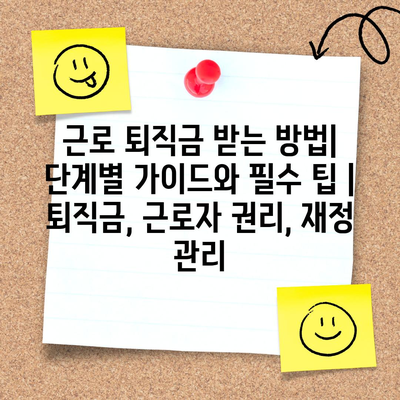 근로 퇴직금 받는 방법|
단계별 가이드와 필수 팁 |
퇴직금, 근로자 권리, 재정
관리